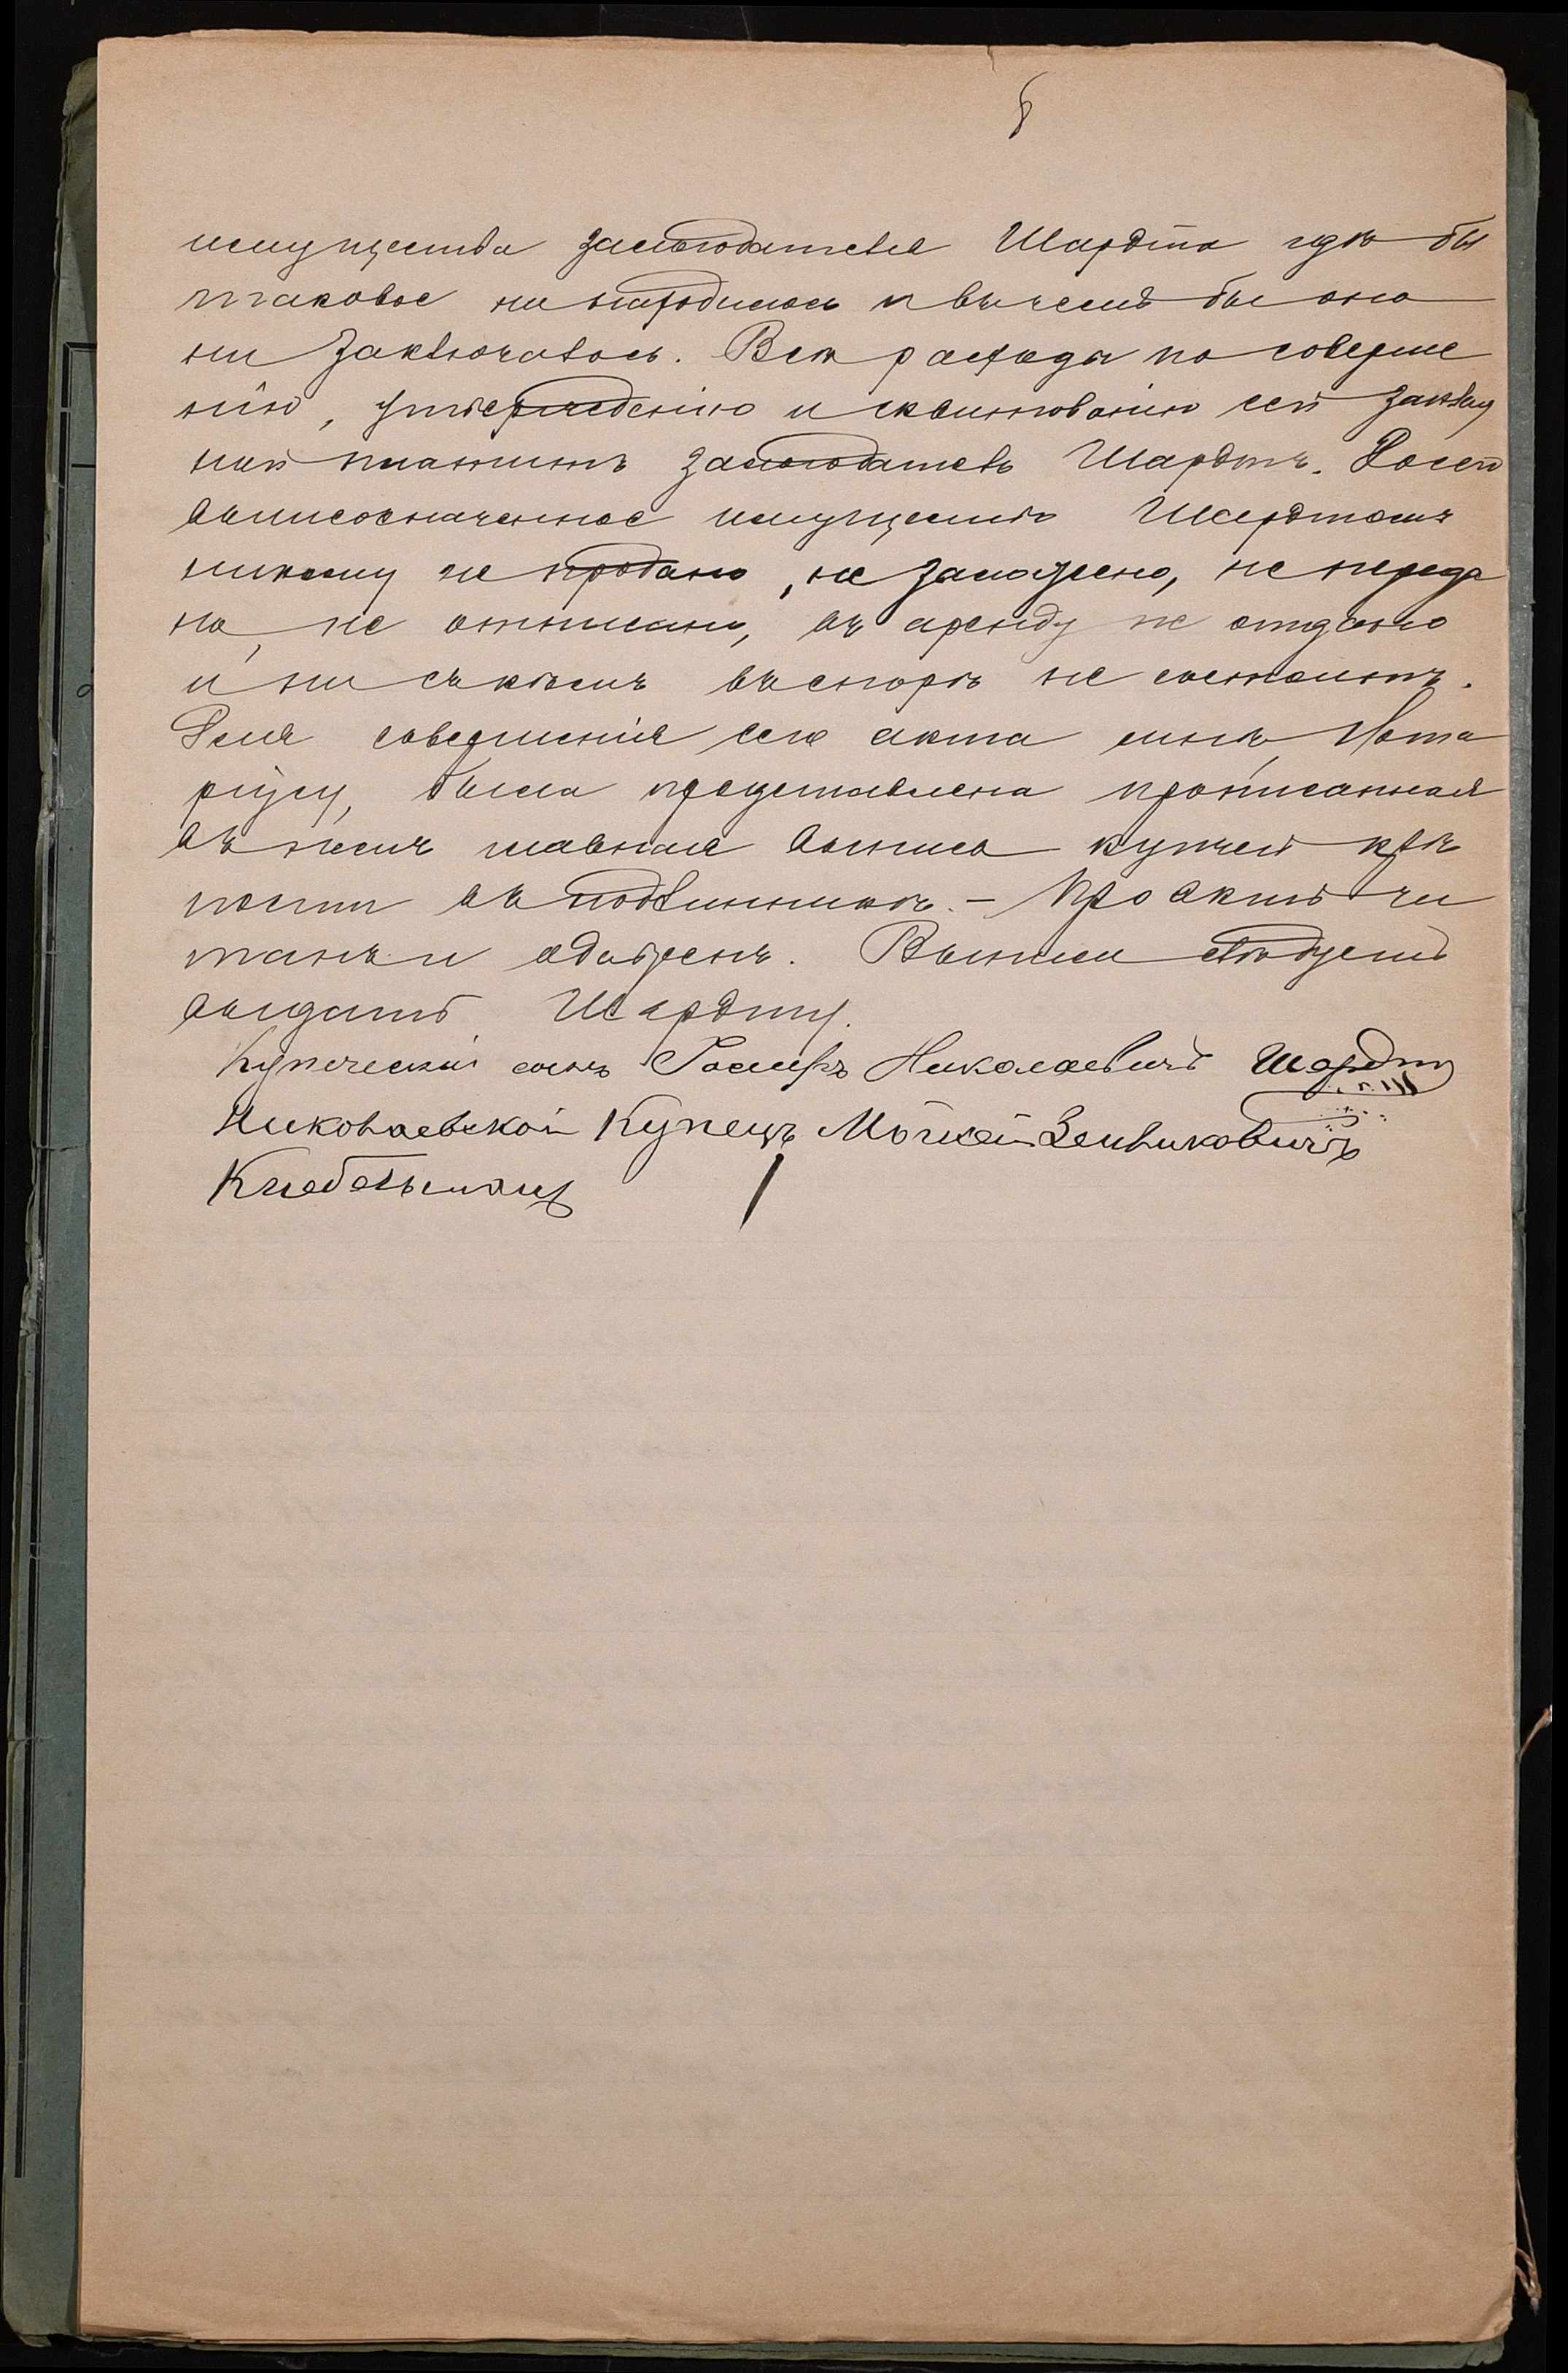 имущества залогодателя Шардта гдѣ бы
таковое ни находилось и въ чемъ бы оно
ни заключалось. Всѣ расходы по соверше
нію, утвержденію и сей заклад
ной платитъ залогодатель Шардтъ. До сего
вышеозначенное имущество Шардтомъ
никому не продано, не заложено, не переда
но, не отписано, въ аренду не отдано
и ни съ кѣмъ въ спорѣ не состоитъ.
Для совершенія сего акта мнѣ, Нота
ріусу, была представлена прописанная
въ немъ главная выпись купчей крѣ
пости въ подлинникѣ. – Проактъ чи
танъ и одобренъ. Выписи слѣдуетъ
выдать Шардту.
Купеческій сынъ Николаевичъ Шардтъ
Николаевскій Купецъ Мошкой Зельниковичъ